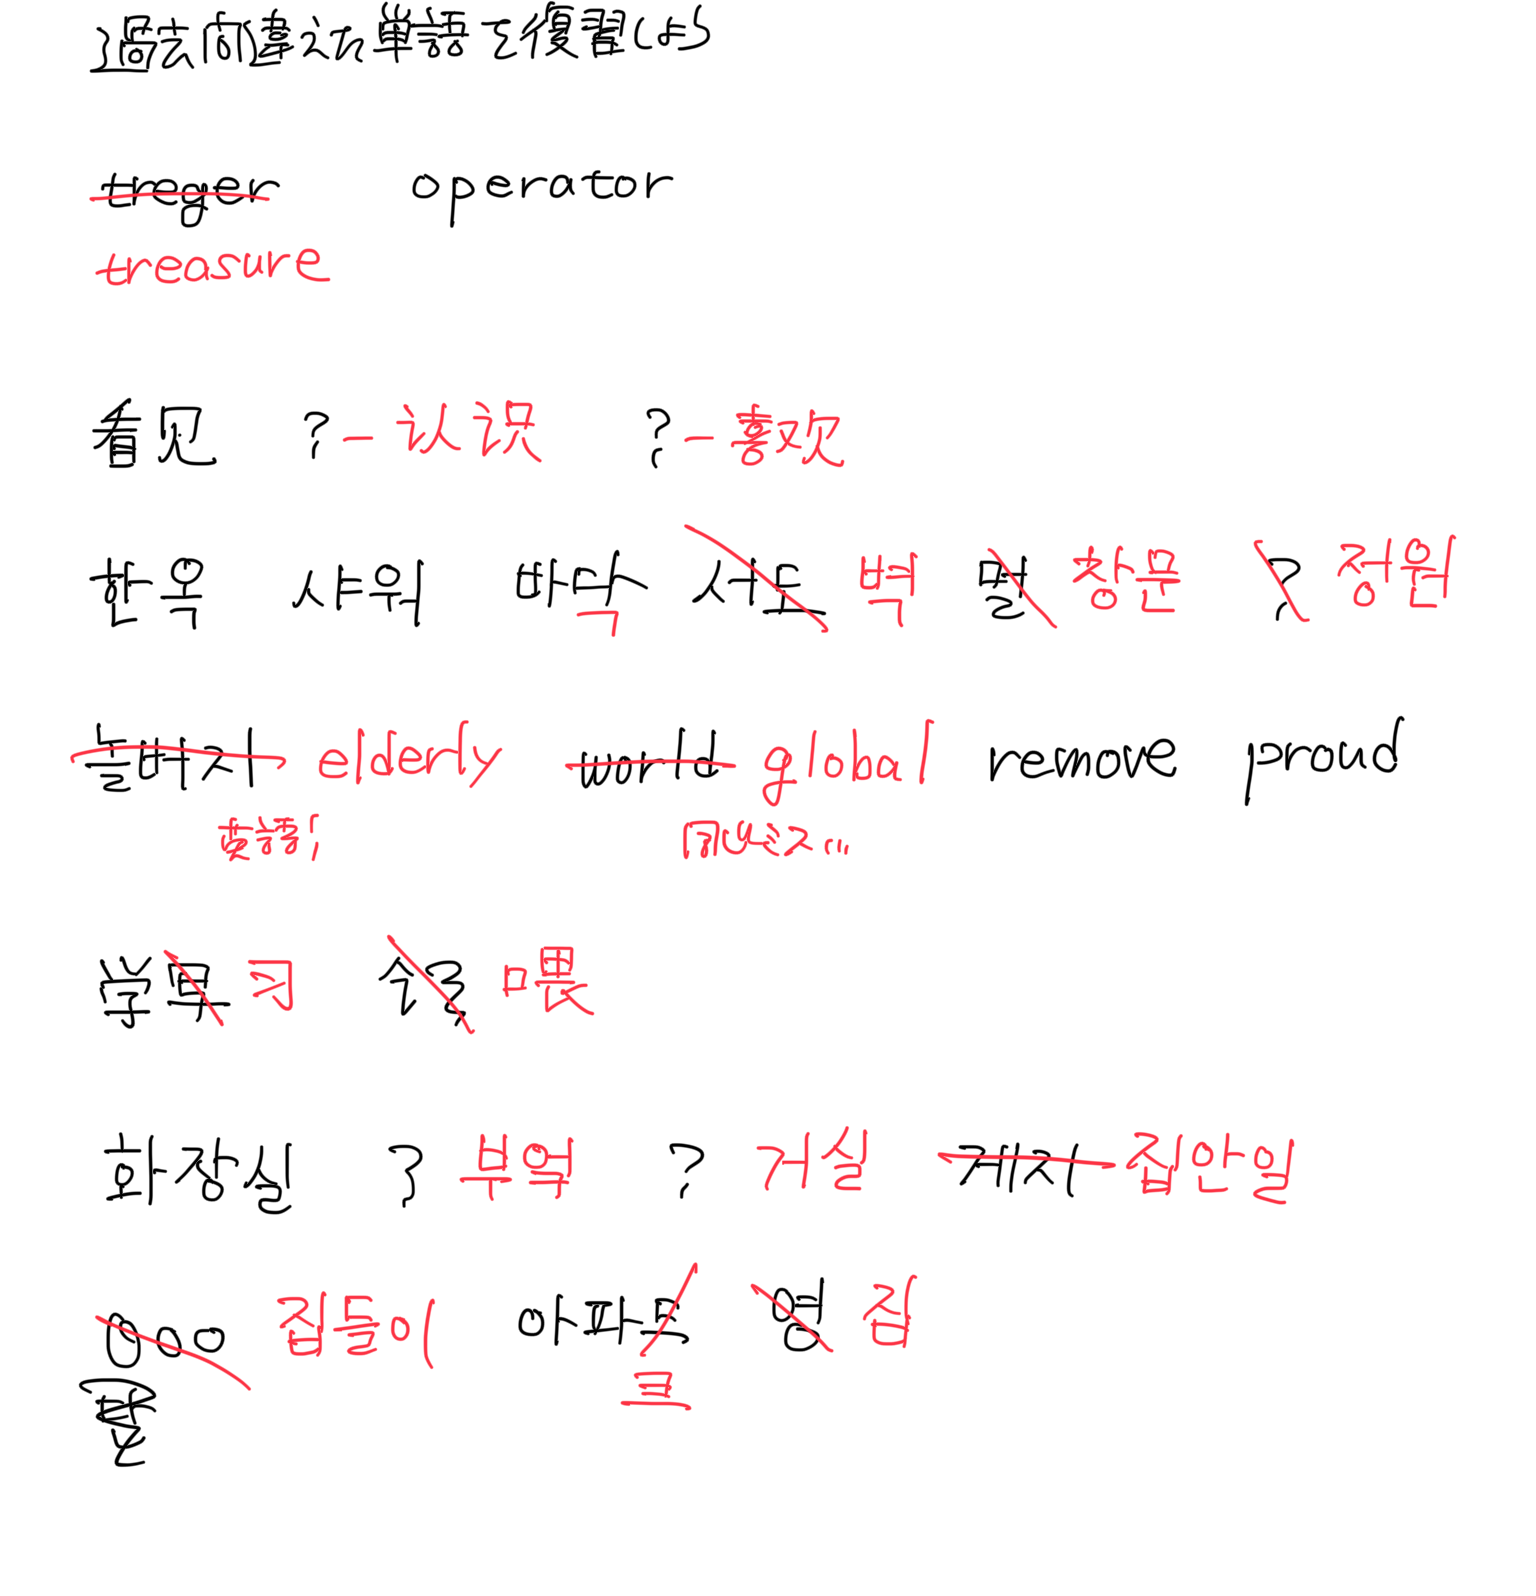 過去間違えた単語を復習しよう
treger operator
treasure
看见 ?-认识 ?-喜欢
한옥 샤워 바닥 서도 벽 멀 창문 ? 정원
놀버지 elderly world global remove proud
英語! 同じミス...
学 习 喂
화장실 ? 부엌 ? 거실 게지 집안일
집들이 아파트 영 집
트